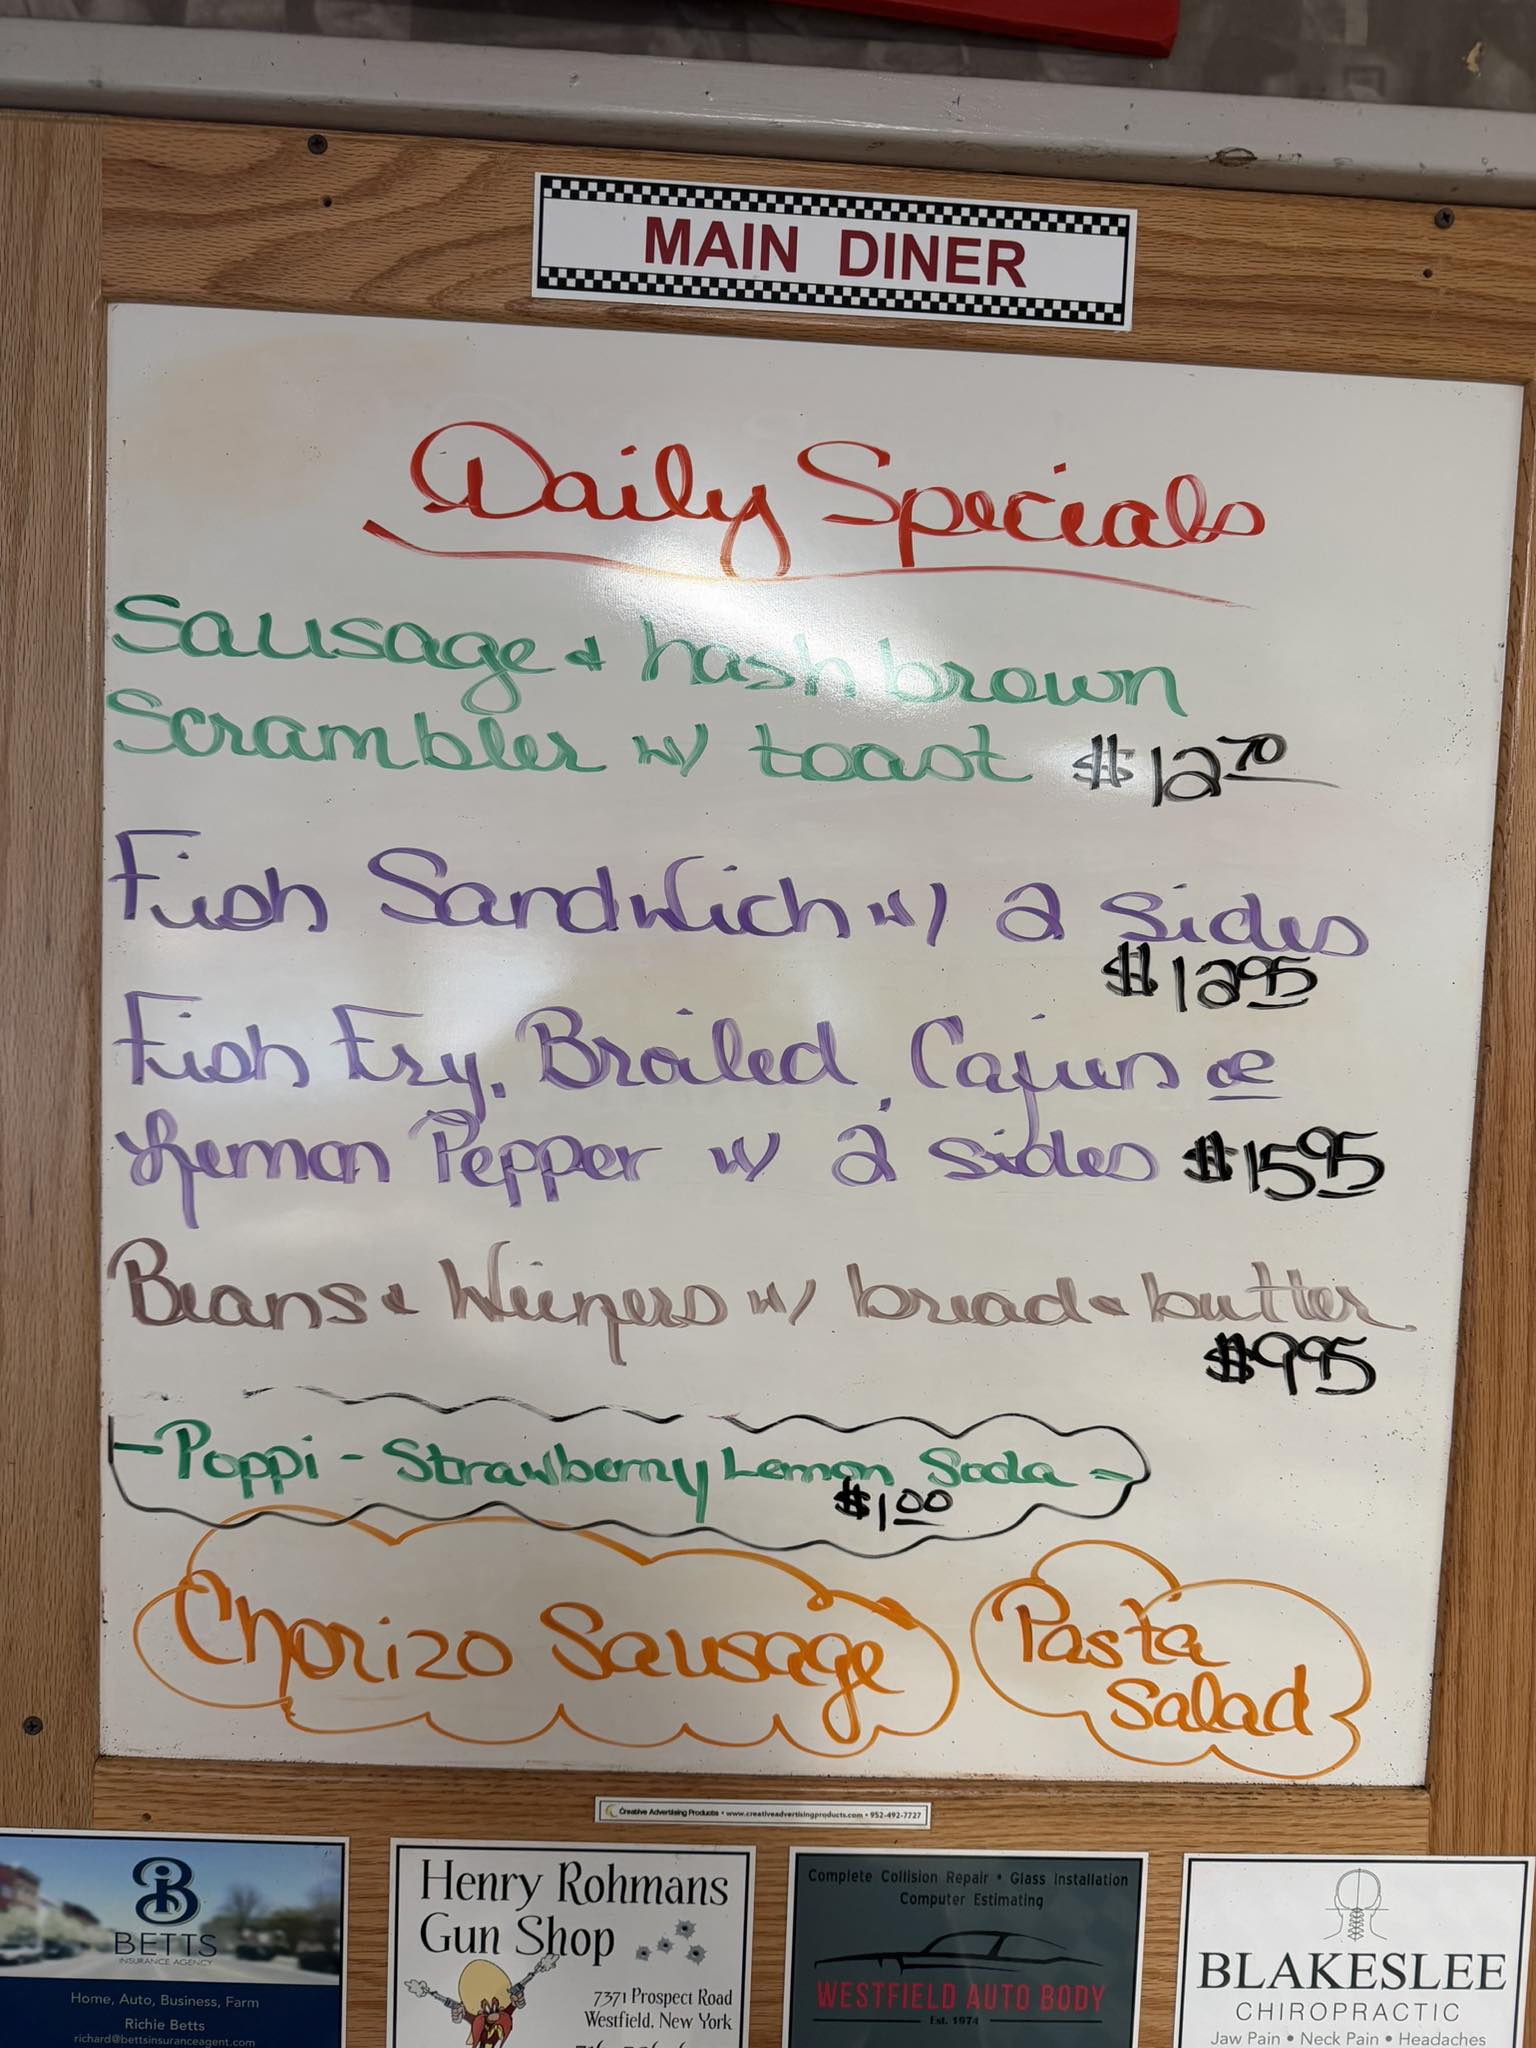 MAIN DINER
Daily Specials
Sausage & hash brown
Scrambler w/ toast $12.70
Fish Sandwich w/ 2 sides
$12.95
Fish Fry, Broiled, Cajun or
Lemon Pepper w/ 2 sides $15.95
Beans & Wieners w/ bread & butter
$9.95
- Poppi - Strawberry Lemon Soda -
$1.00
Chorizo Sausage
Pasta
Salad
Creative Advertising Products • www.creativeadvertisingproducts.com • 952-492-7727
B
BETTS
INSURANCE AGENCY
Home, Auto, Business, Farm
Richie Betts
richard@bettsinsuranceagent.com
Henry Rohmans
Gun Shop
7371 Prospect Road
Westfield, New York
Complete Collision Repair • Glass Installation
Computer Estimating
WESTFIELD AUTO BODY
Est. 1974
BLAKESLEE
CHIROPRACTIC
Jaw Pain • Neck Pain • Headaches